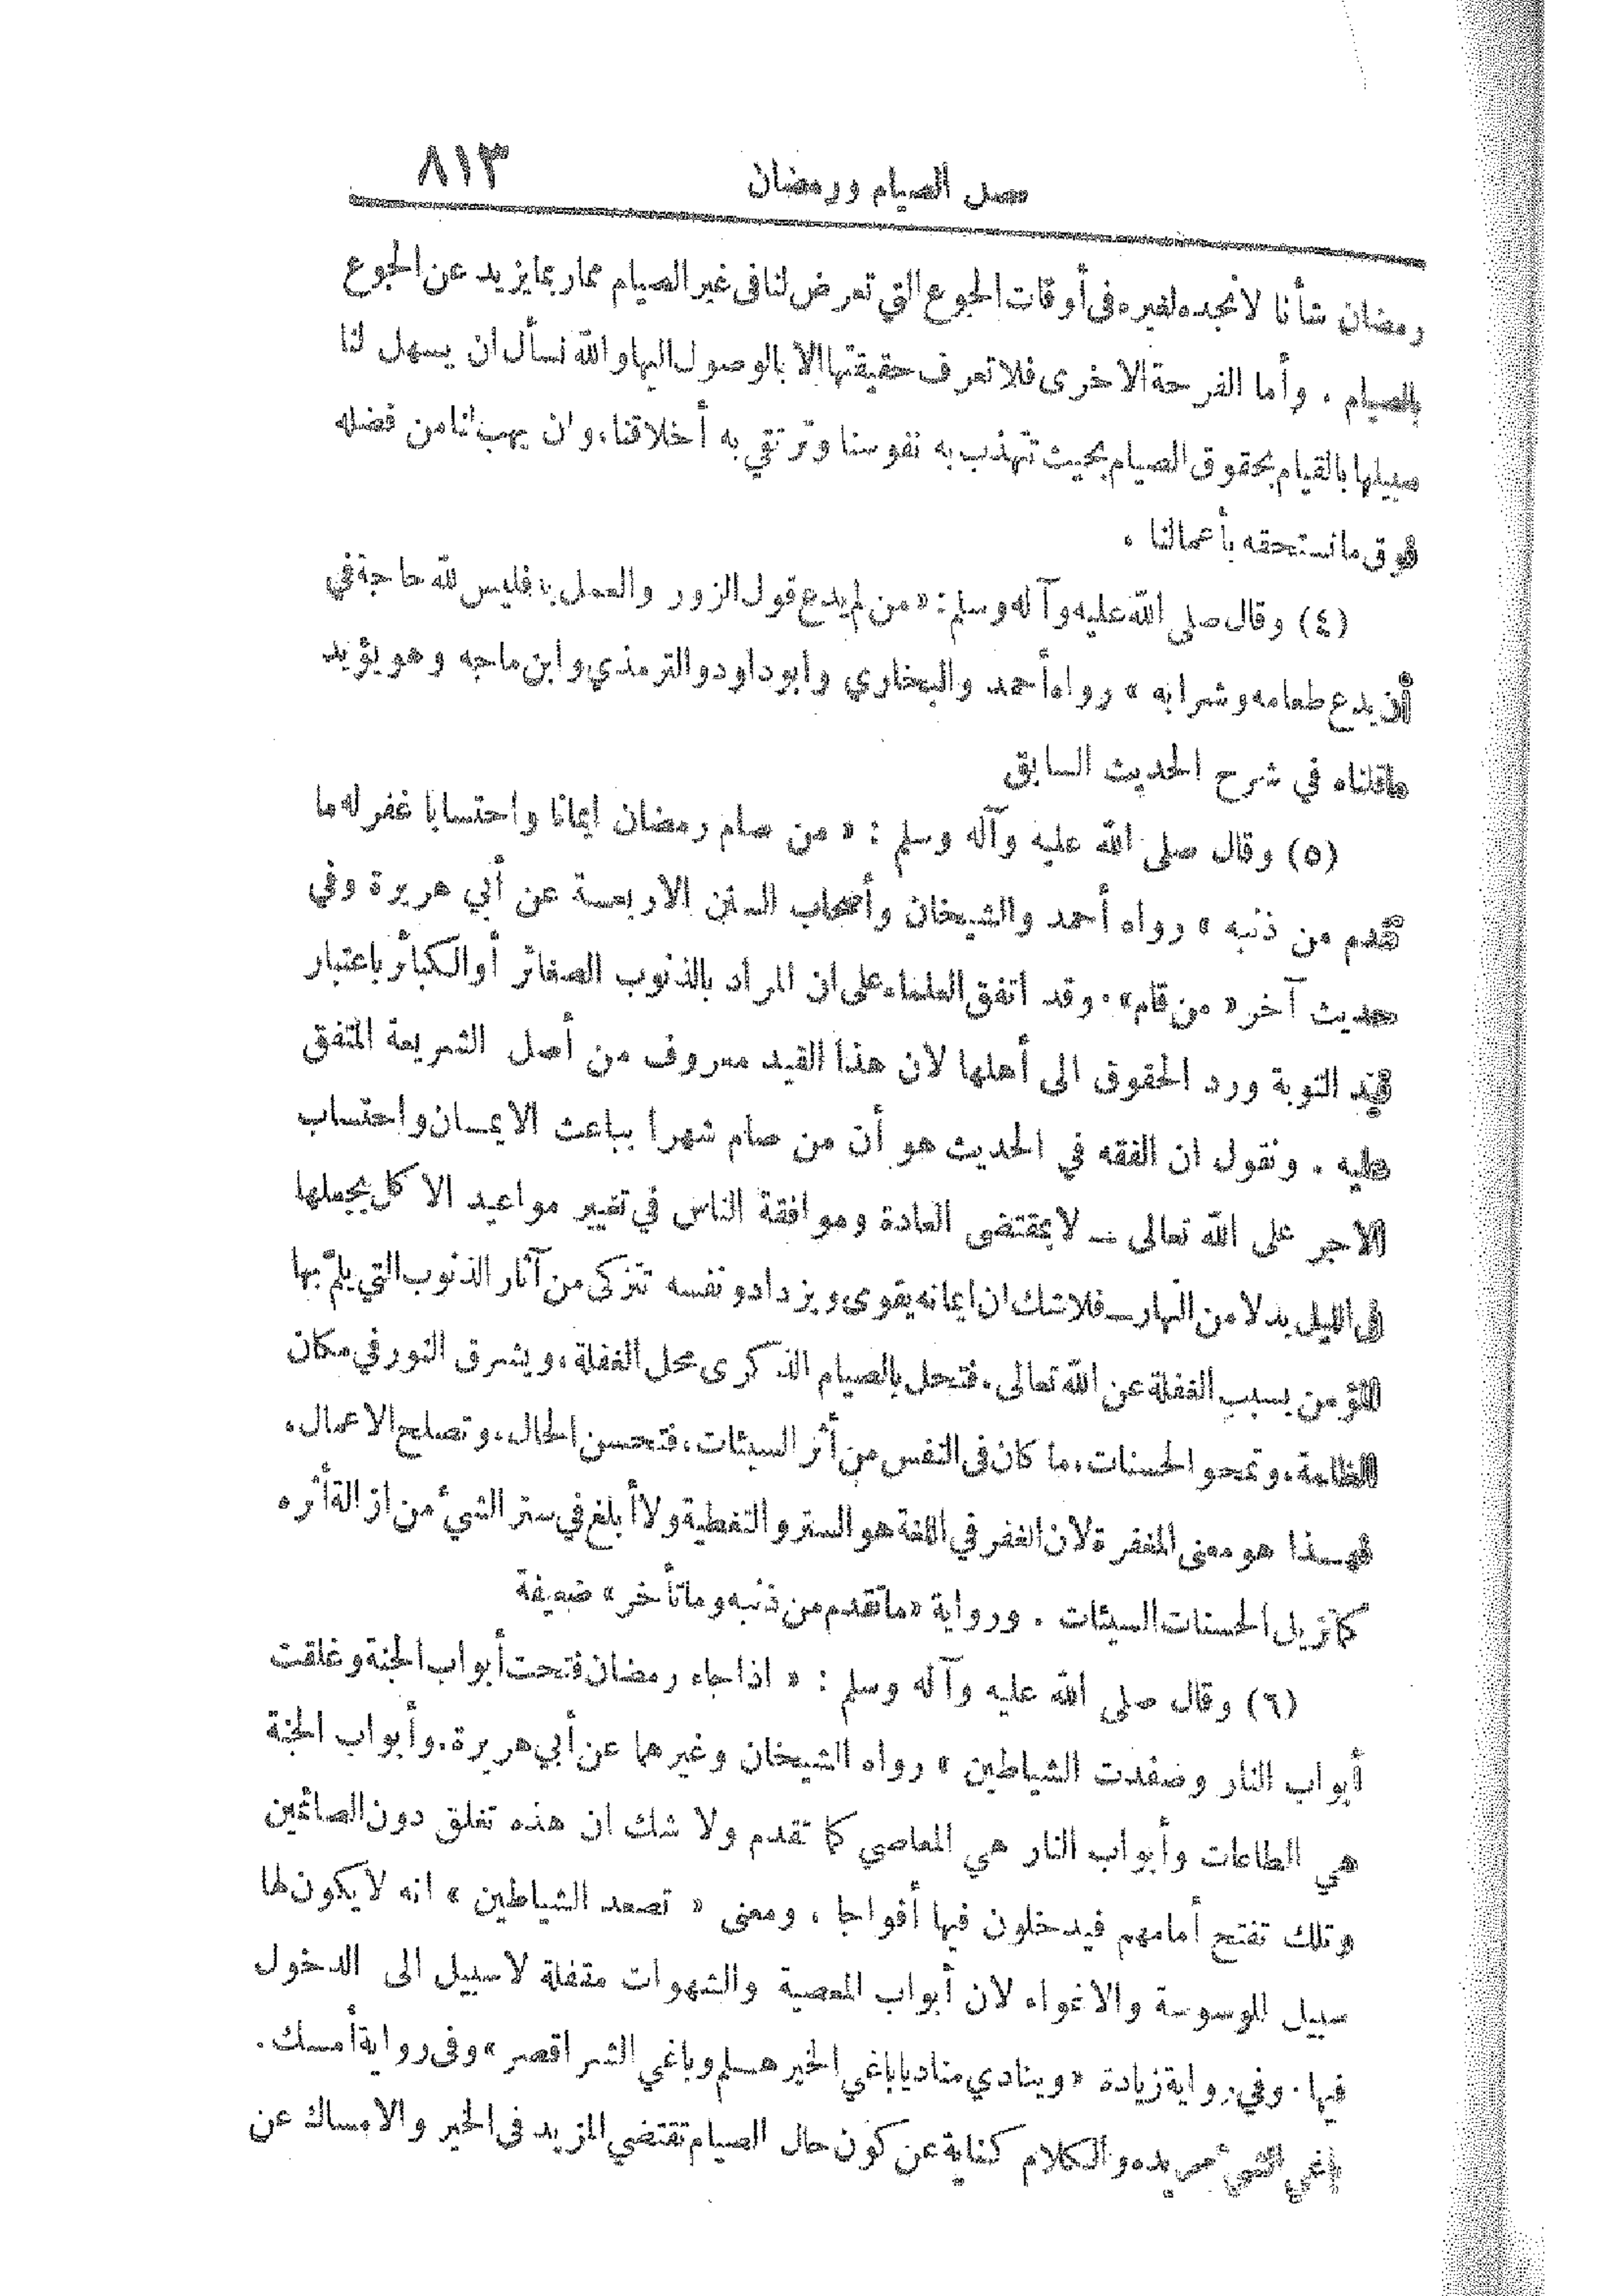 فصل الصيام ورمضان ٨١٣
رمضان شأنا لا نجده لغيره في أوقات الجوع التي تعرض لنا في غير الصيام مما ربما يزيد عن الجوع
بالصيام . وأما الفرحة الاخرى فلا تعرف حقيقتها الا بالوصول اليها والله نسأل ان يسهل لنا
سبيلها بالقيام بحقوق الصيام بحيث تتهذب به نفوسنا وترتقي به أخلاقنا، وان يهب لنا من فضله
فوق ما نستحقه بأعمالنا .
(٤) وقال صلى الله عليه وآله وسلم: «من لم يدع قول الزور والعمل به فليس لله حاجة في
أن يدع طعامه وشرابه » رواه أحمد والبخاري وابو داود والترمذي وابن ماجه وهو يؤيد
ما قلناه في شرح الحديث السابق
(٥) وقال صلى الله عليه وآله وسلم : « من صام رمضان ايمانا واحتسابا غفر له ما
تقدم من ذنبه » رواه أحمد والشيخان وأصحاب السنن الاربعة عن أبي هريرة وفي
حديث آخر « من قام» . وقد اتفق العلماء على ان المراد بالذنوب الصغائر أو الكبائر باعتبار
قيد التوبة ورد الحقوق الى أهلها لان هذا القيد معروف من أصل الشريعة المتفق
عليه . ونقول ان الفقه في الحديث هو أن من صام شهرا بباعث الايمان واحتساب
الاجر على الله تعالى ــ لا بمقتضى العادة وموافقة الناس في تغيير مواعيد الاكل بجعلها
في الليل بدلا من النهار ــ فلا شك ان ايمانه يقوى ويزداد ونفسه تتزكى من آثار الذنوب التي يلمّ بها
المؤمن بسبب الغفلة عن الله تعالى، فتحل بالصيام الذكرى محل الغفلة، ويشرق النور في مكان
الظلمة، وتمحو الحسنات، ما كان في النفس من أثر السيئات، فتحسن الحال، وتصلح الاعمال،
فهذا هو معنى المغفرة لان الغفر في اللغة هو الستر والتغطية ولا أبلغ في ستر الشيء من ازالة أثره
كما تزيل الحسنات السيئات . ورواية «ما تقدم من ذنبه وما تأخر» ضعيفة
(٦) وقال صلى الله عليه وآله وسلم : « اذا جاء رمضان فتحت أبواب الجنة وغلقت
أبواب النار وصفدت الشياطين » رواه الشيخان وغيرهما عن أبي هريرة. وأبواب الجنة
هي الطاعات وأبواب النار هي المعاصي كما تقدم ولا شك ان هذه تغلق دون الصائمين
وتلك تفتح أمامهم فيدخلون فيها أفواجا ، ومعنى « تصعد الشياطين » انه لا يكون لها
سبيل للوسوسة والاغواء لان أبواب المعصية والشهوات مقفلة لا سبيل الى الدخول
فيها . وفي رواية زيادة «وينادي مناد يا باغي الخير هلم ويا باغي الشر اقصر» وفي رواية أمسك .
باغي الشيء مريده والكلام كناية عن كون حال الصيام تقتضي المزيد في الخير والامساك عن